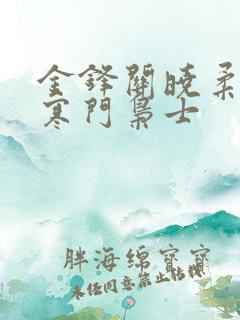 金鋒關曉柔
寒門梟士
胖海绵寶寶
未经同意禁止转载